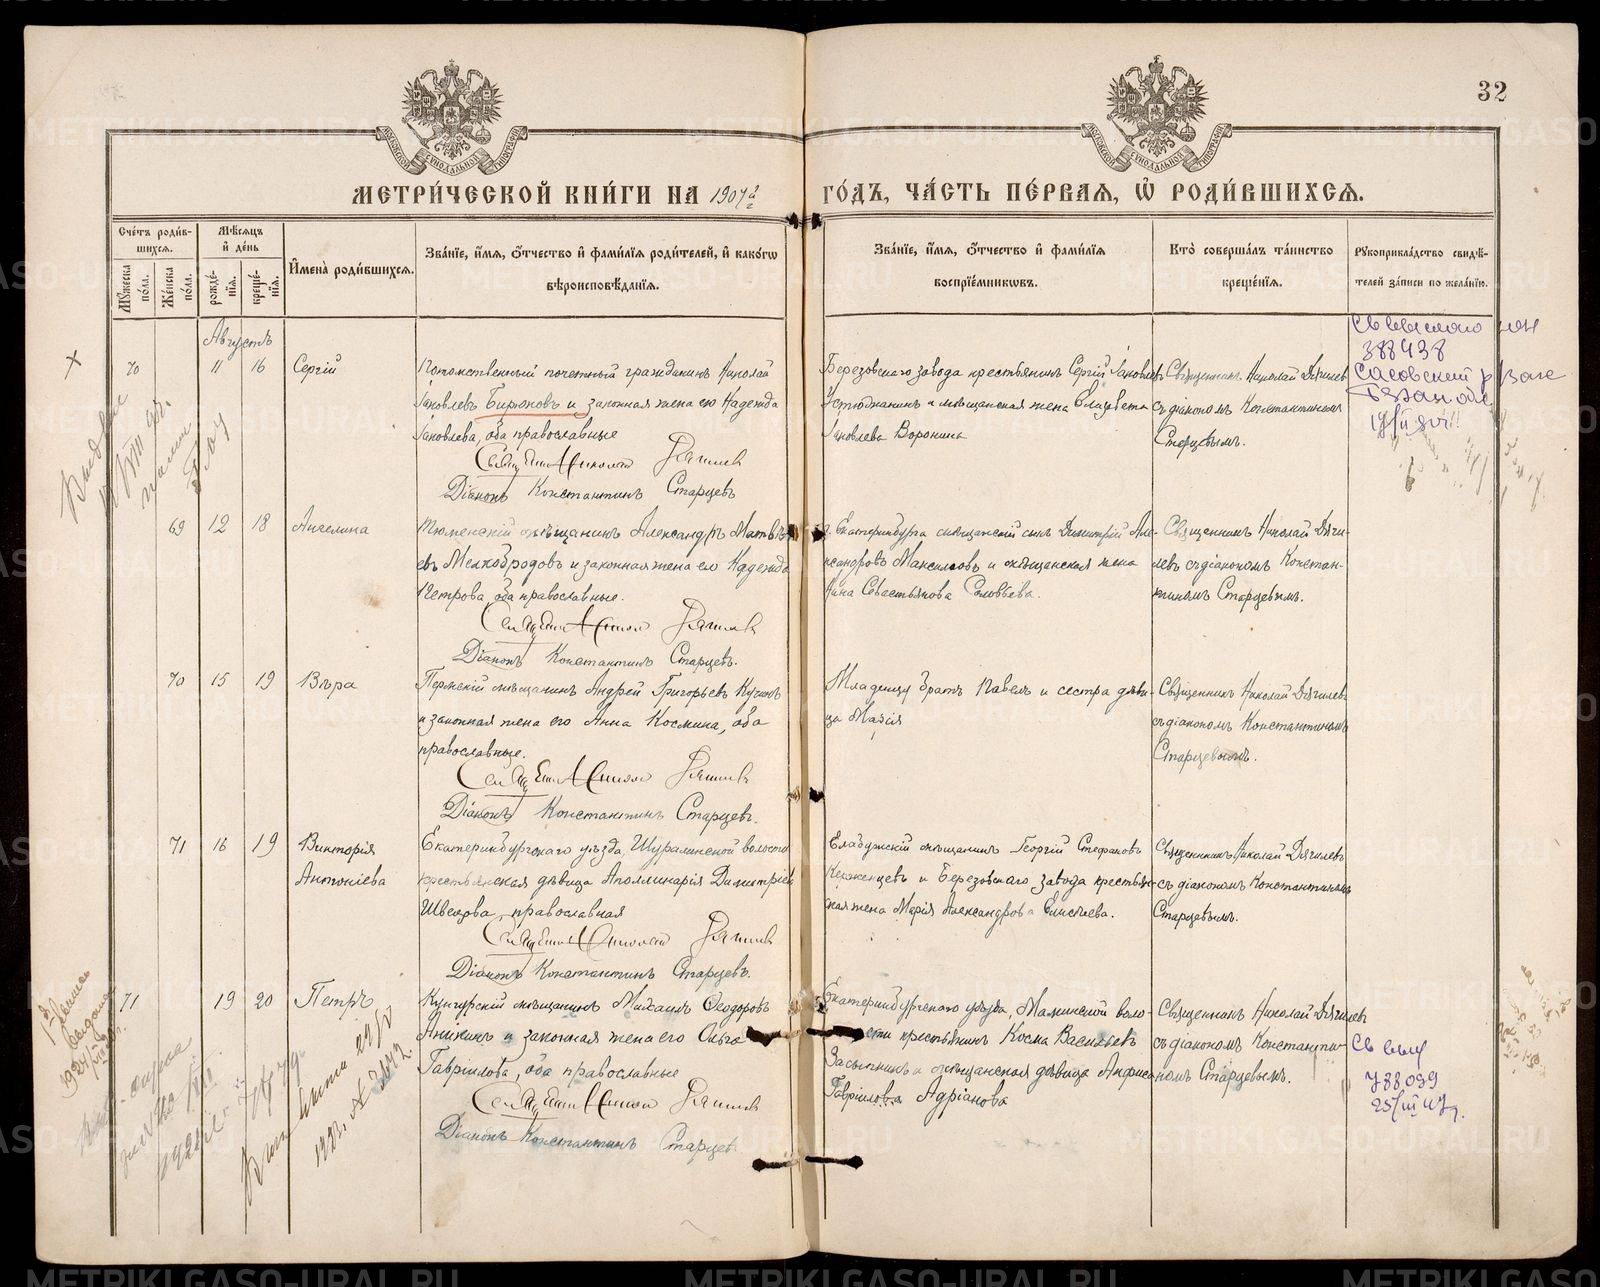 32
МЕТРИ́ЧЕСКОЙ КНИ́ГИ НА 1907й
ГО́ДЪ, ЧА́СТЬ ПЕ́РВАЯ, Ѡ҆ РОДИ́ВШИХСЯ.
Сче́тъ роди́в-
шихся.
Мѣ́сяцъ
и҆ де́нь
И҆мена̀ роди́вшихся.
Зва́нїе, и҆́мя, ѻ҆́тчество и҆ фами́лїя роди́телей, и҆ како́гѡ
вѣроисповѣ́данїя.
Мꙋ́жеска
по́ла.
Же́нска
по́ла.
рожде́-
нїя.
креще́-
нїя.
Зва́нїе, и҆́мя, ѻ҆́тчество и҆ фами́лїя
воспрїе́мникѡвъ.
Кто̀ соверша́лъ та́инство
креще́нїя.
Рꙋкоприкла́дство свидѣ́-
телей за́писи по жела́нїю.
Августъ
70 11 16 Сергій
Потомственный почетный гражданинъ Николай
Яковлевъ Бирюковъ и законная жена его Надежда
Яковлева, оба православные
Діаконъ Константинъ Старцевъ
Березовскаго завода крестьянинъ Сергій Яковлевъ
Устюжанинъ и мѣщанская жена Елизавета
Яковлева Воронина
Священникъ Николай Дягилевъ
съ діакономъ Константиномъ
Старцевымъ.
388438
69 12 18 Ангелина
Тюменскій мѣщанинъ Александръ Матвѣ-
евъ Мелкобродовъ и законная жена его Надежда
Петрова, оба православные.
Діаконъ Константинъ Старцевъ.
г. Екатеринбурга мѣщанскій сынъ Димитрій Але-
ксандровъ Максимовъ и мѣщанская жена
Анна Севастьянова Соловьева.
Священникъ Николай Дяги-
левъ съ діакономъ Констан-
тиномъ Старцевымъ.
70 15 19 Вѣра
Пермскій мѣщанинъ Андрей Григорьевъ Кузинъ
и законная жена его Анна Космина, оба
православные.
Діаконъ Константинъ Старцевъ.
Младенцу братъ Павелъ и сестра дѣви-
ца Марія
Священникъ Николай Дягилевъ
съ діакономъ Константиномъ
Старцевымъ.
71 16 19 Викторія
Антоніева
Екатеринбургскаго уѣзда Шуралинской волости
крестьянская дѣвица Аполлинарія Димитріева
Швецова, православная
Діаконъ Константинъ Старцевъ.
Елабужскій мѣщанинъ Георгій Стефановъ
Керженцевъ и Березовскаго завода крестьян-
ская жена Марія Александрова Елисѣева.
Священникъ Николай Дягилевъ
съ діакономъ Константиномъ
Старцевымъ.
71 19 20 Петръ
Кунгурскій мѣщанинъ Михаилъ Ѳеодоровъ
Аникинъ и законная жена его Ольга
Гавріилова, оба православные
Діаконъ Константинъ Старцевъ
Екатеринбургскаго уѣзда, Маминской воло-
сти крестьянинъ Косма Васильевъ
Засыпкинъ и мѣщанская дѣвица Анфиса
Гавріилова Адріанова
Священникъ Николай Дягилевъ
съ діакономъ Константи-
номъ Старцевымъ.
788099
25/III 47 г.
METRIKI.GASO-URAL.RU